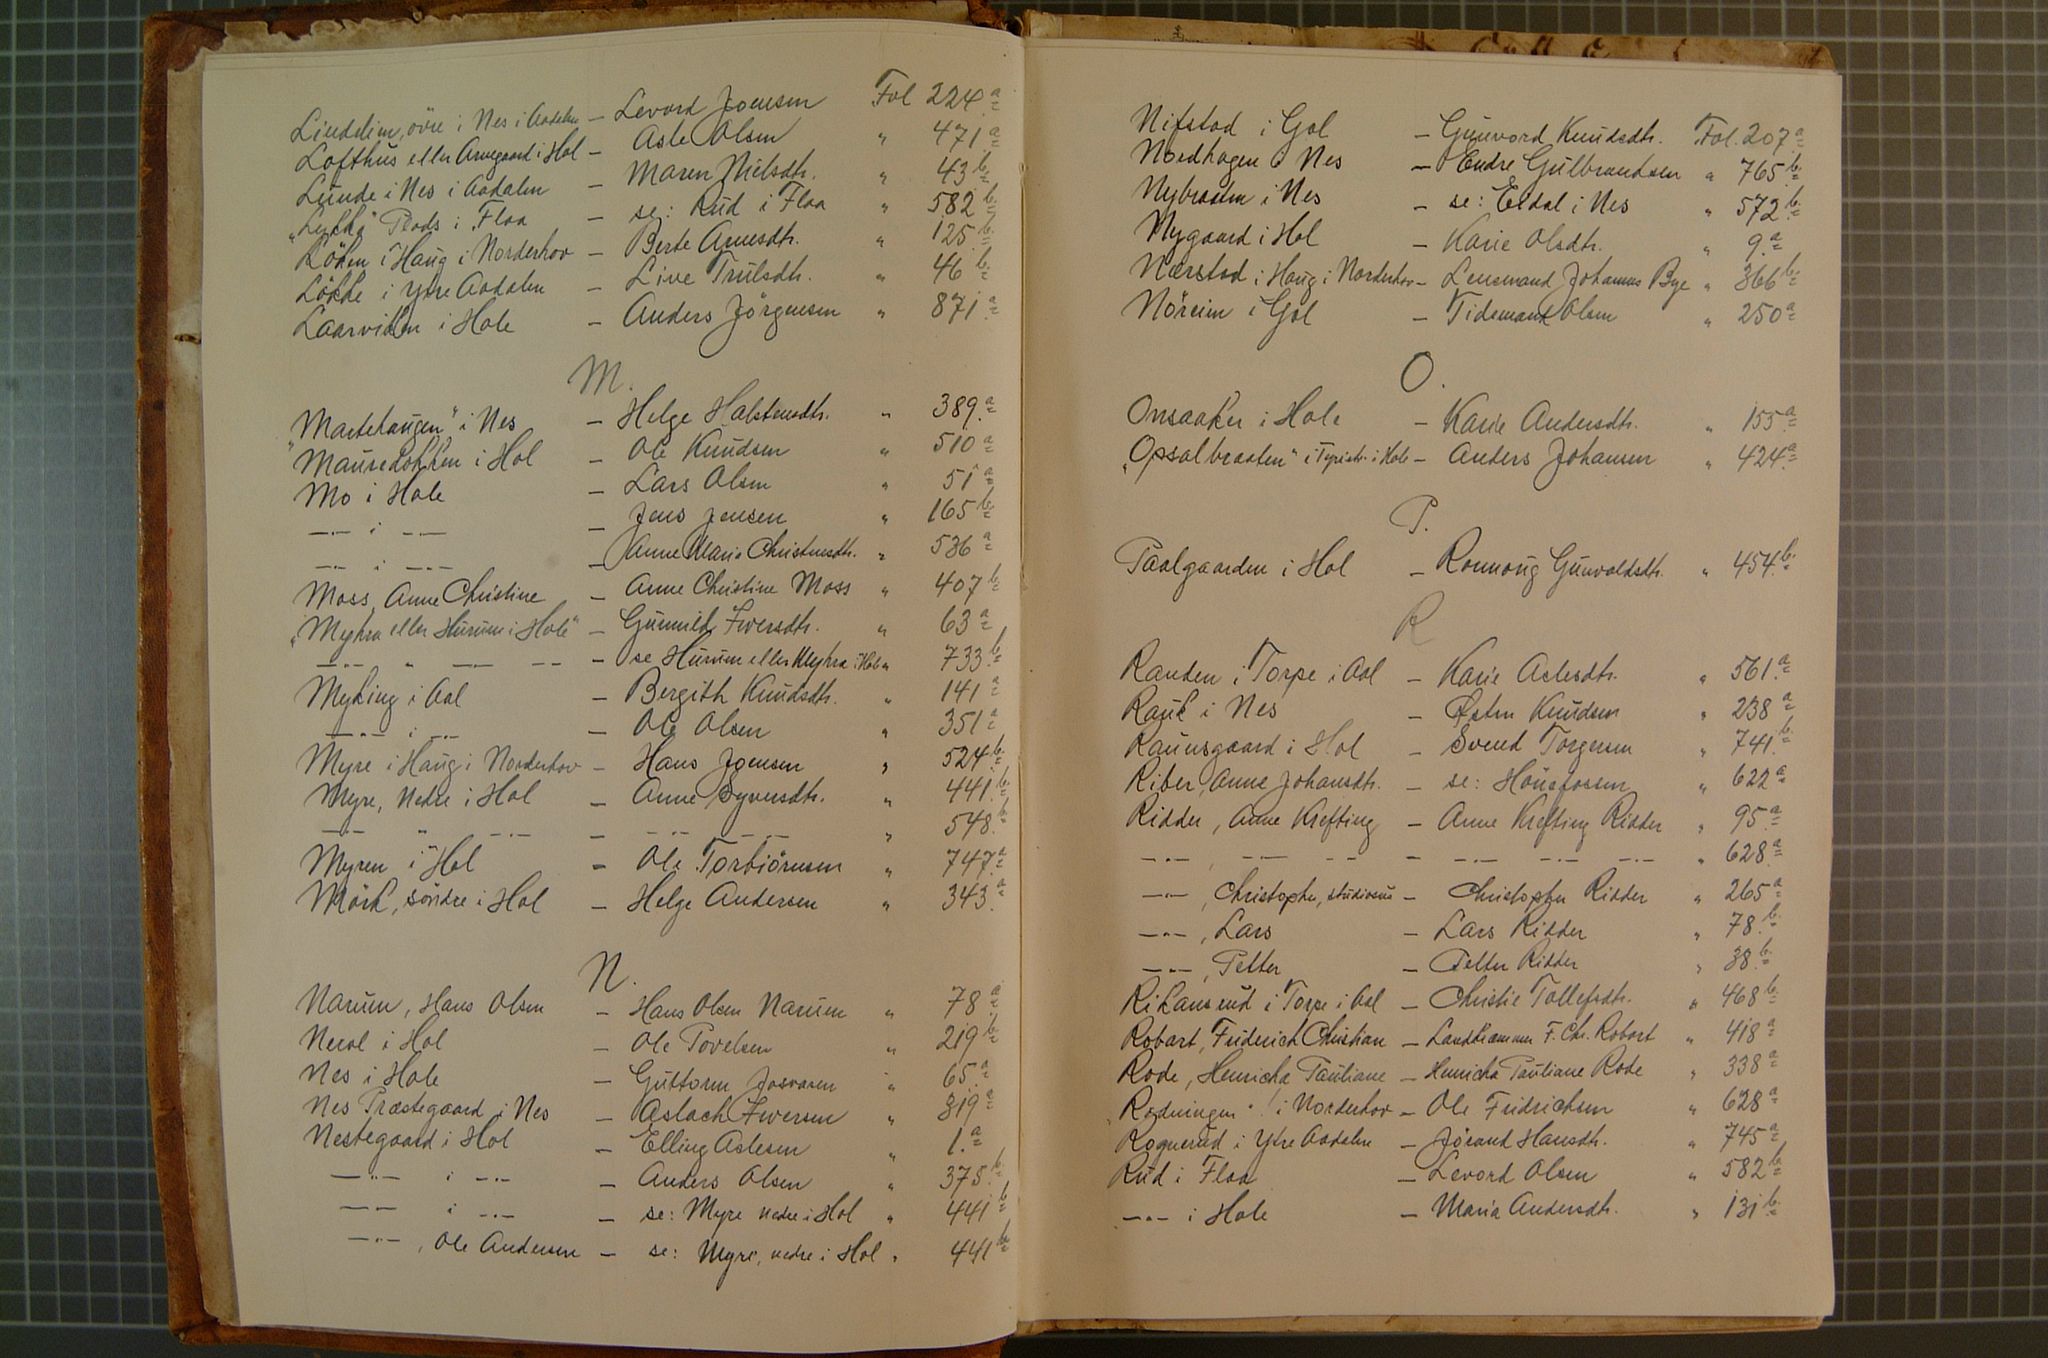 Lindelien, övre i Nes i Aadalen – Levord Joensen Fol 224 a
Lofthus eller Arnegaard i Hol – Asle Olsen " 471 a
Lunde i Nes i Aadalen – Maren Nielsdtr. " 43 b
"Lykke" Plads i Flaa – se: Rud i Flaa " 582 b
Löken i Haug i Norderhov – Berte Arnesdtr. " 125 b
Lökke i Ytre Aadalen – Live Trulsdtr. " 46 b
Laarviken i Hole – Anders Jörgensen " 871 a
M.
"Martehaugen" i Nes – Helge Halstensdtr. " 389 a
"Mauredokken i Hol – Ole Knudsen " 510 a
Mo i Hole – Lars Olsen " 51 a
–"– i –"– – Jens Jensen " 165 b
–"– i –"– – Anne Marie Christensdtr. " 536 a
Moss, Anne Christine – Anne Christine Moss " 407 b
"Myhra eller Hurum i Hole" – Gunnild Iversdtr. " 63 a
–"– " –"– –"– – se Hurum eller Myhra i Hole " 733 b
Myking i Aal – Bergith Knudsdtr. " 141 a
–"– i –"– – Ole Olsen " 351 a
Myre i Haug i Norderhov – Hans Joensen " 524 b
Myre, nedre i Hol – Anne Syversdtr. " 441 b
–"– " –"– – –"– –"– " 548 b
Myren i Hol – Ole Torbiörnsen " 747 a
Mörk, söndre i Hol – Helge Andersen " 343 a
N.
Narum, Hans Olsen – Hans Olsen Narum " 78 a
Neraal i Hol – Ole Povelsen " 219 b
Nes i Hole – Guttorm Josvasen " 65 a
Nes Præstegaard i Nes – Aslach Iwersen " 319 a
Nestegaard i Hol – Elling Aslesen " 1. a
–"– i –"– – Anders Olsen " 375 b
–"– i –"– – se: Myre nedre i Hol " 441 b
–"–, Ole Andersen – se: Myre, nedre i Hol " 441 b
Nifstad i Gol – Gunvord Knudsdtr. Fol. 207 a
Nordhagen i Nes – Endre Gulbrandsen " 765 b
Nybraaten i Nes – se: Eidal i Nes " 572 b
Nygaard i Hol – Karie Olsdtr. " 9 a
Nærstad i Haug i Norderhov – Lensmand Johannes Bye " 366 b
Nöreim i Gol – Tidemand Olsen " 250 a
O.
Onsaaker i Hole – Karie Andersdtr. " 155 a
"Opsalbraaten" i Tyristr. i Hole – Anders Johansen " 424 a
P.
Paalgaarden i Hol – Ronnoug Gunvoldsdtr. " 454 b
R
Randen i Torpe i Aal – Karie Aslesdtr. " 561 a
Rauk i Nes – Østen Knudsen " 238 a
Raunsgaard i Hol – Svend Torgersen " 741 b
Riber, Anne Johansdtr. – se: Hönefossen " 622 a
Ridder, Anne Krefting – Anne Krefting Ridder " 95 a
–"–, –"– –"– – –"– –"– –"– " 628 a
–"–, Christopher, studiosus – Christopher Ridder " 265 a
–"–, Lars – Lars Ridder " 78 b
–"–, Petter – Petter Ridder " 38 b
Rikansrud i Torpe i Aal – Christie Tollefsdtr. " 468 b
Robart, Friderich Christian – Landkræmmer F. Chr. Robart " 418 a
Rode, Henricha Pauliane – Henricha Pauliane Rode " 338 a
"Rodningen" i Norderhov – Ole Fridrichsen " 628 a
Rognerud i Ytre Aadalen – Jörand Hansdtr. " 745 a
Rud i Flaa – Levord Olsen " 582 b
–"– i Hole – Maria Andersdtr. " 131 b